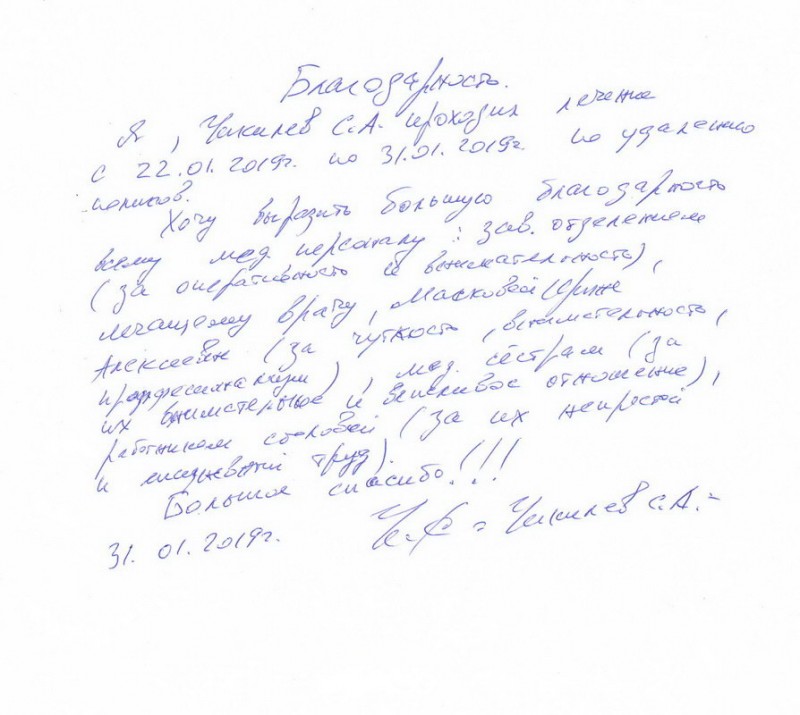 Благодарность.
Я, Чикилев С.А. проходил лечение
с 22.01.2019г. по 31.01.2019г. по удалению
полипов.
Хочу выразить большую благодарность
всему мед. персоналу: зав. отделением
(за оперативность и внимательность),
лечащему врачу, Масковой Ирине
Алексеевне (за чуткость, внимательность,
профессионализм), мед. сёстрам (за
их внимательное и вежливое отношение),
работникам столовой (за их непростой
и ежедневный труд).
Большое спасибо!!!
31.01.2019г. Чикилев С.А.